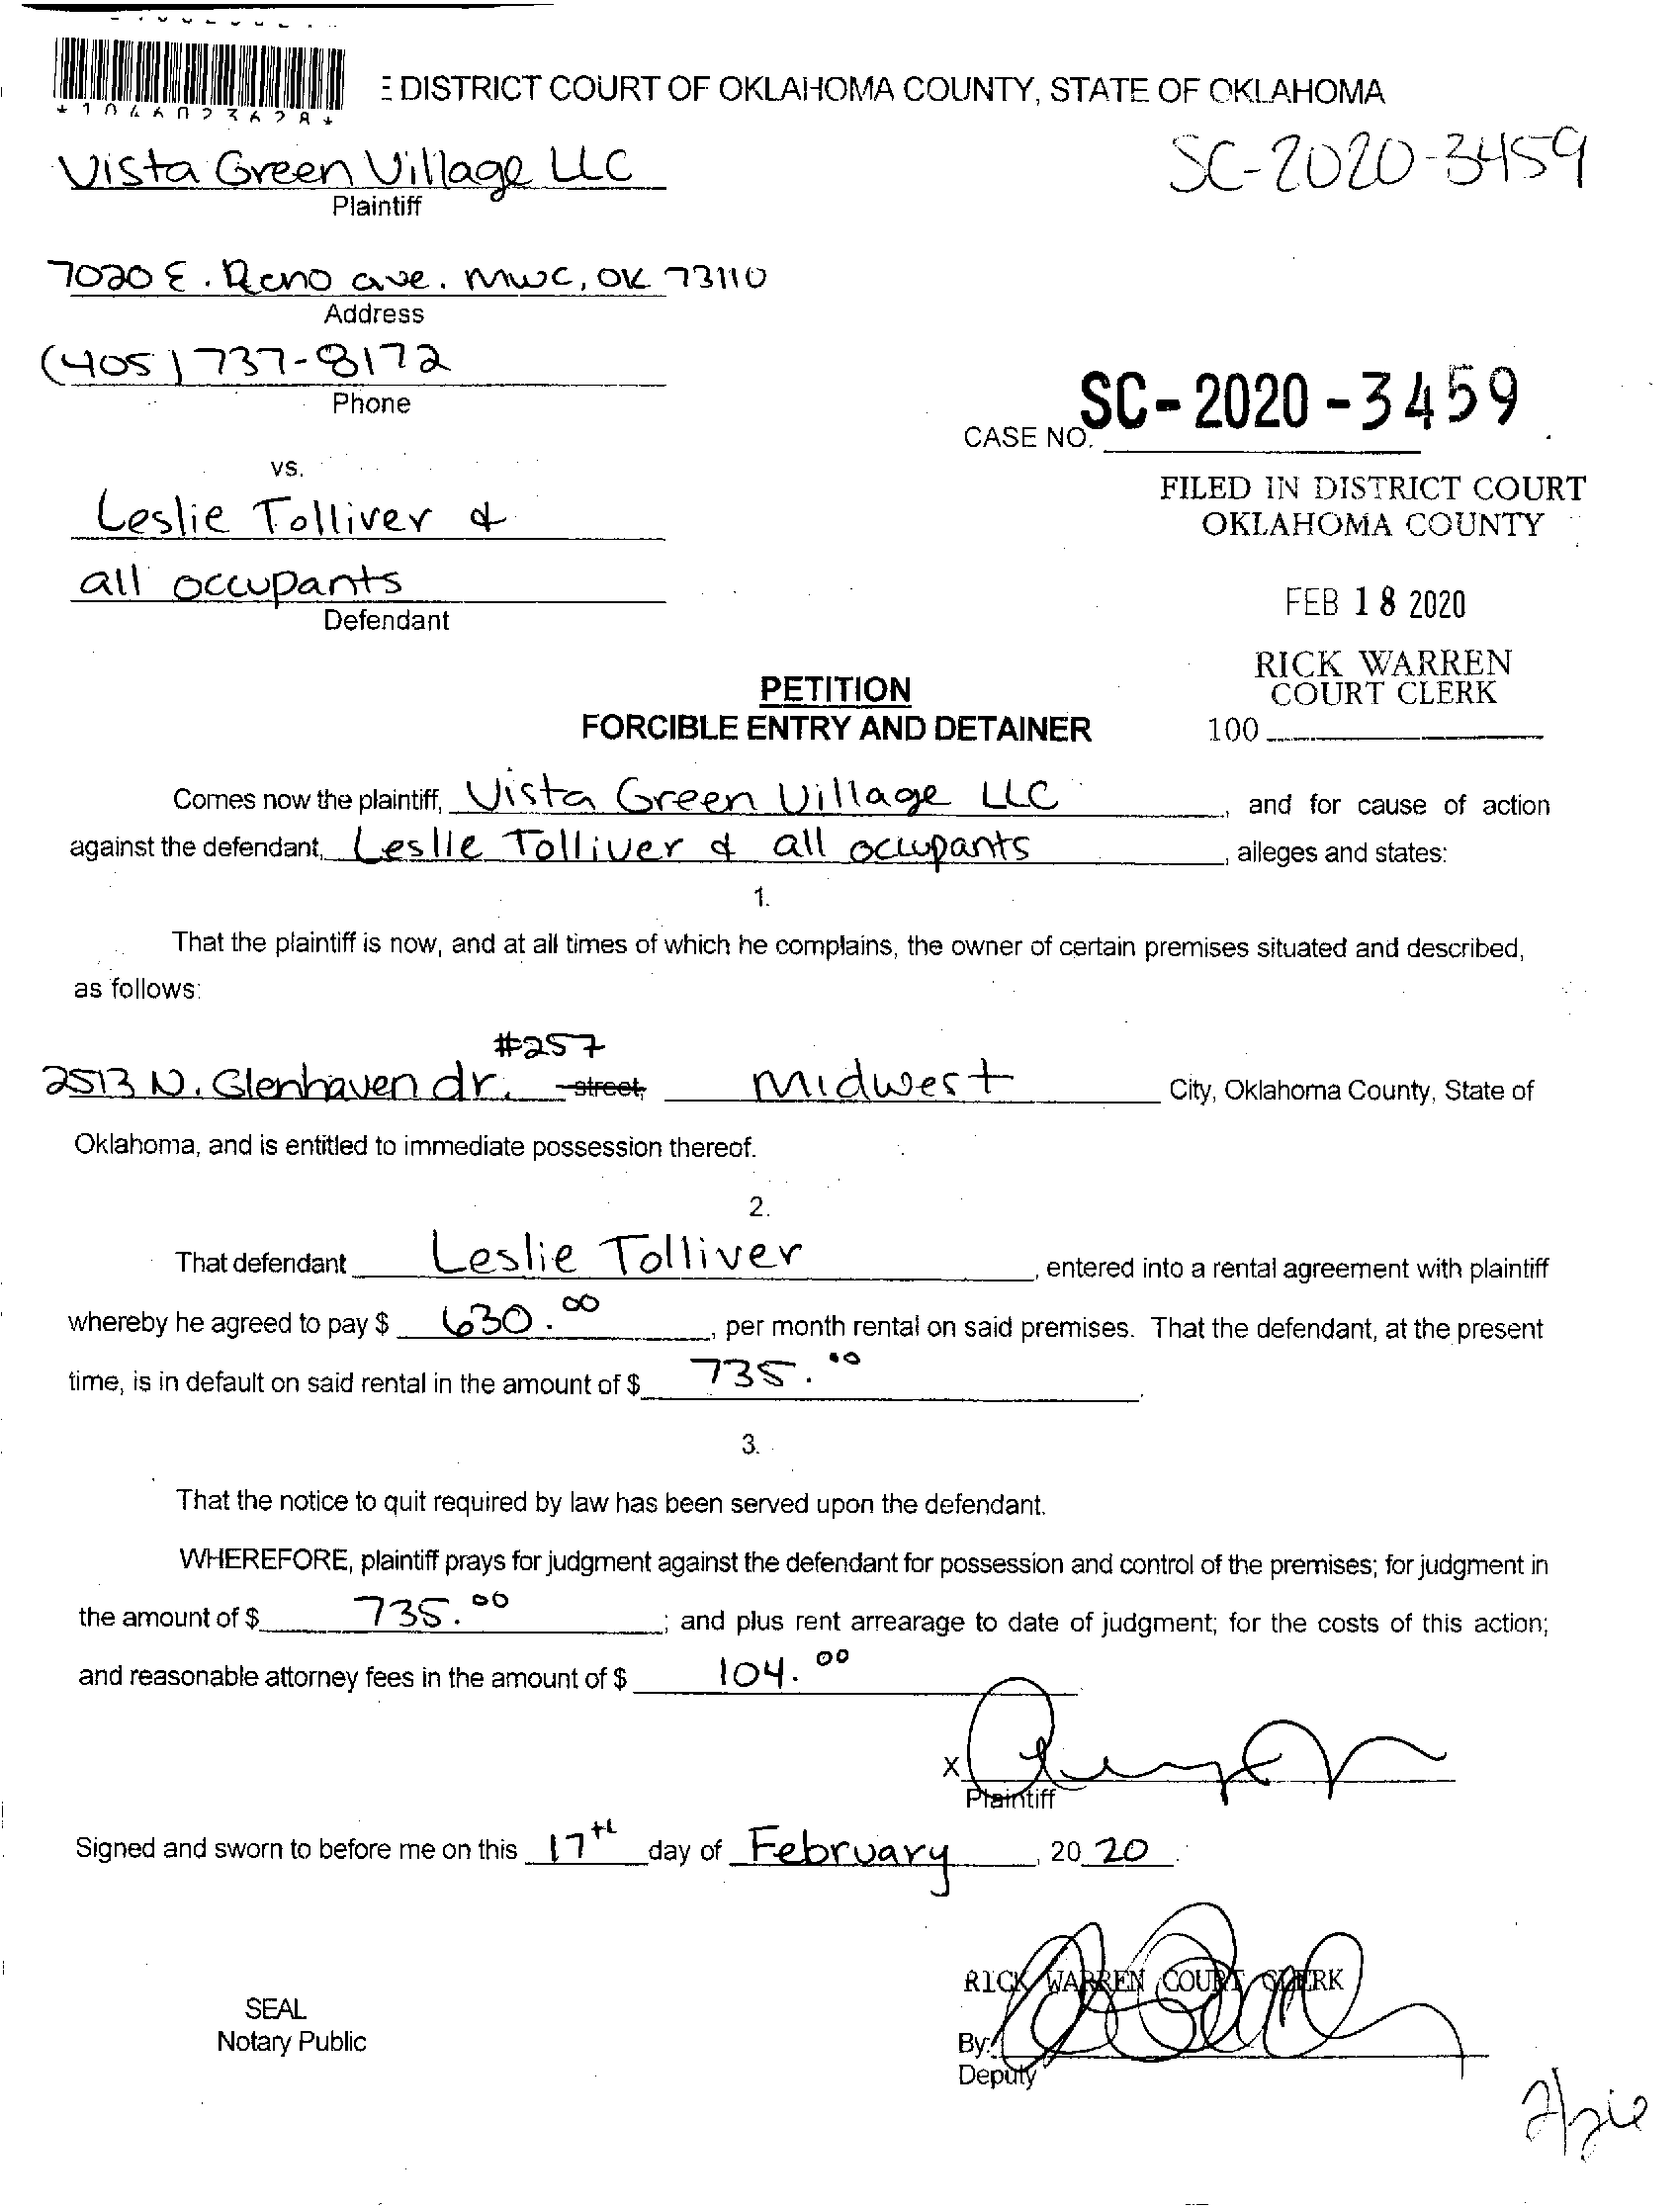 DISTRICT COURT OF OKLAHOMA COUNTY, STATE OF OKLAHOMA
*1046023628*
Vista Green Village LLC
SC-2020-3459
Plaintiff
7020 E. Reno ave. MWC, OK 73110
Address
(405) 737-8172
Phone
SC-2020-3459
CASE NO.
vs.
Leslie Tolliver &
all occupants
Defendant
FILED IN DISTRICT COURT
OKLAHOMA COUNTY
FEB 18 2020
RICK WARREN
COURT CLERK
100
PETITION
FORCIBLE ENTRY AND DETAINER
Comes now the plaintiff, Vista Green Village LLC, and for cause of action
against the defendant, Leslie Tolliver & all occupants, alleges and states:
1.
That the plaintiff is now, and at all times of which he complains, the owner of certain premises situated and described,
as follows:
#257
2513 N. Glenhaven dr. street, Midwest City, Oklahoma County, State of
Oklahoma, and is entitled to immediate possession thereof.
2.
That defendant Leslie Tolliver, entered into a rental agreement with plaintiff
whereby he agreed to pay $ 630.00, per month rental on said premises. That the defendant, at the present
time, is in default on said rental in the amount of $ 735.00.
3.
That the notice to quit required by law has been served upon the defendant.
WHEREFORE, plaintiff prays for judgment against the defendant for possession and control of the premises; for judgment in
the amount of $ 735.00; and plus rent arrearage to date of judgment; for the costs of this action;
and reasonable attorney fees in the amount of $ 104.00
X
Plaintiff
Signed and sworn to before me on this 17th day of February, 2020.
RICK WARREN COURT CLERK
SEAL
Notary Public
By:
Deputy